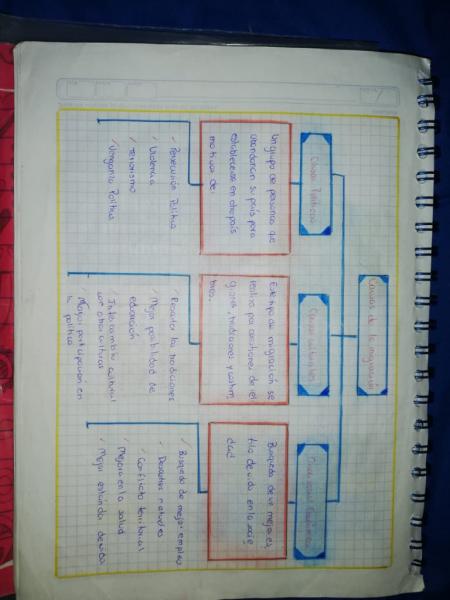 Causas de la migración
Causas Políticas
Un grupo de personas que
abandonan su país para
establecerse en otro país
motivos de:
✓ Persecución Política
✓ Violencia
✓ Terrorismo
✓ Venganza Política
Causas culturales
Este tipo de migración se
realiza por cuestiones de
tradiciones y
✓ Rescatar las tradiciones
✓ Mejor posibilidad de
educación
✓ Intercambio cultural
con otras culturas
✓ Mayor participación en
la política
Causas
Busqueda de un mejor es
tilo de vida en la socie
dad
✓ Busqueda de mejor empleo
✓ Desastres naturales
✓ Conflicto territorial
✓ Mejora en la salud
✓ Mejor estándar de vida